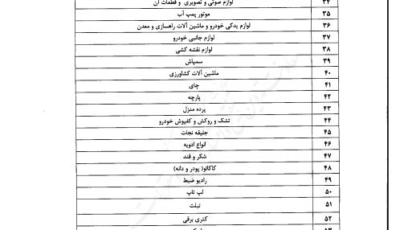 لوازم صوتی و تصویری و قطعات آن ۳۴
موتور پمپ آب ۳۵
لوازم یدکی خودرو و ماشین آلات راهسازی و معدن ۳۶
لوازم جانبی خودرو ۳۷
لوازم نقشه کشی ۳۸
سمپاش ۳۹
ماشین آلات کشاورزی ۴۰
چای ۴۱
پارچه ۴۲
پرده منزل ۴۳
تشک و روکش و کفپوش خودرو ۴۴
جلیقه نجات ۴۵
انواع ادویه ۴۶
شکر و قند ۴۷
کاکائو( پودر و دانه) ۴۸
رادیو ضبط ۴۹
لپ تاپ ۵۰
تبلت ۵۱
کتری برقی ۵۲
۵۳